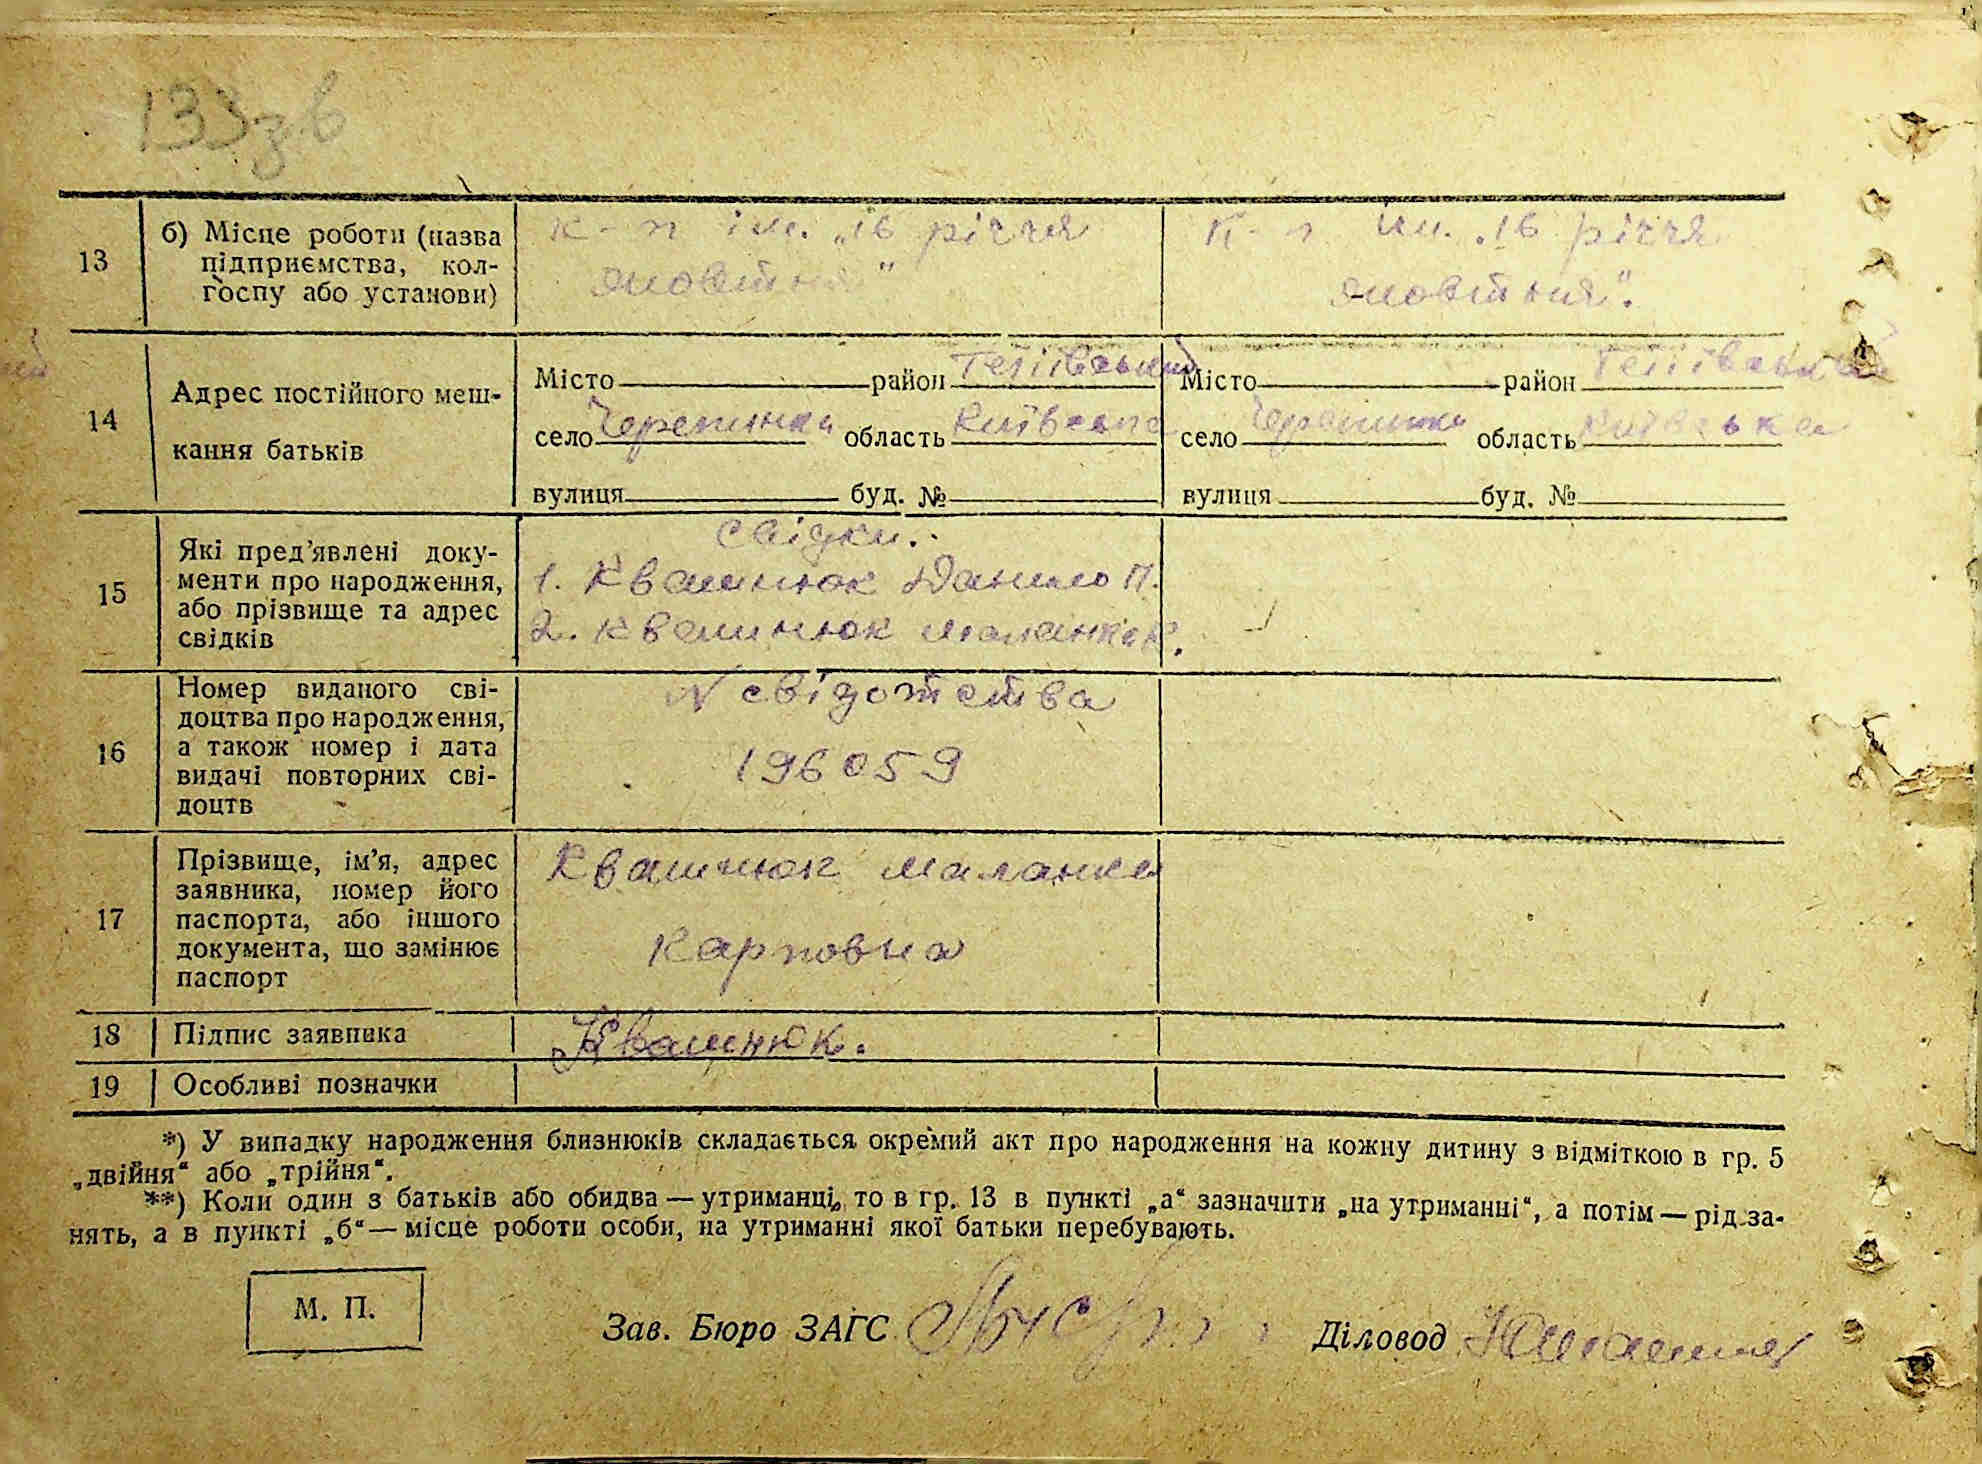 133 зв
13
б) Місце роботи (назва
підприємства, кол-
госпу або установи)
к-п ім. „16 річчя
жовтня"
к-п ім. „16 річчя
жовтня".
14
Адрес постійного меш-
кання батьків
Місто район Тетіївський
село Черепинка область Київська
вулиця буд. №
Місто район Тетіївський
село Черепинка область Київська
вулиця буд. №
15
Які пред'явлені доку-
менти про народження,
або прізвище та адрес
свідків
свідки.
1. Квашнюк Данило П.
2. Квашнюк Маланка К.
16
Номер виданого сві-
доцтва про народження,
а також номер і дата
видачі повторних сві-
доцтв
N свідотства
196059
17
Прізвище, ім'я, адрес
заявника, номер його
паспорта, або іншого
документа, що замінює
паспорт
Квашнюк Маланка
Карповна
18
Підпис заявника
Квашнюк.
19
Особливі позначки
*) У випадку народження близнюків складається окремий акт про народження на кожну дитину з відміткою в гр. 5
„двійня" або „трійня".
**) Коли один з батьків або обидва — утриманці, то в гр. 13 в пункті „а" зазначити „на утриманні", а потім — рід за-
нять, а в пункті „б" — місце роботи особи, на утриманні якої батьки перебувають.
М. П.
Зав. Бюро ЗАГС
Діловод